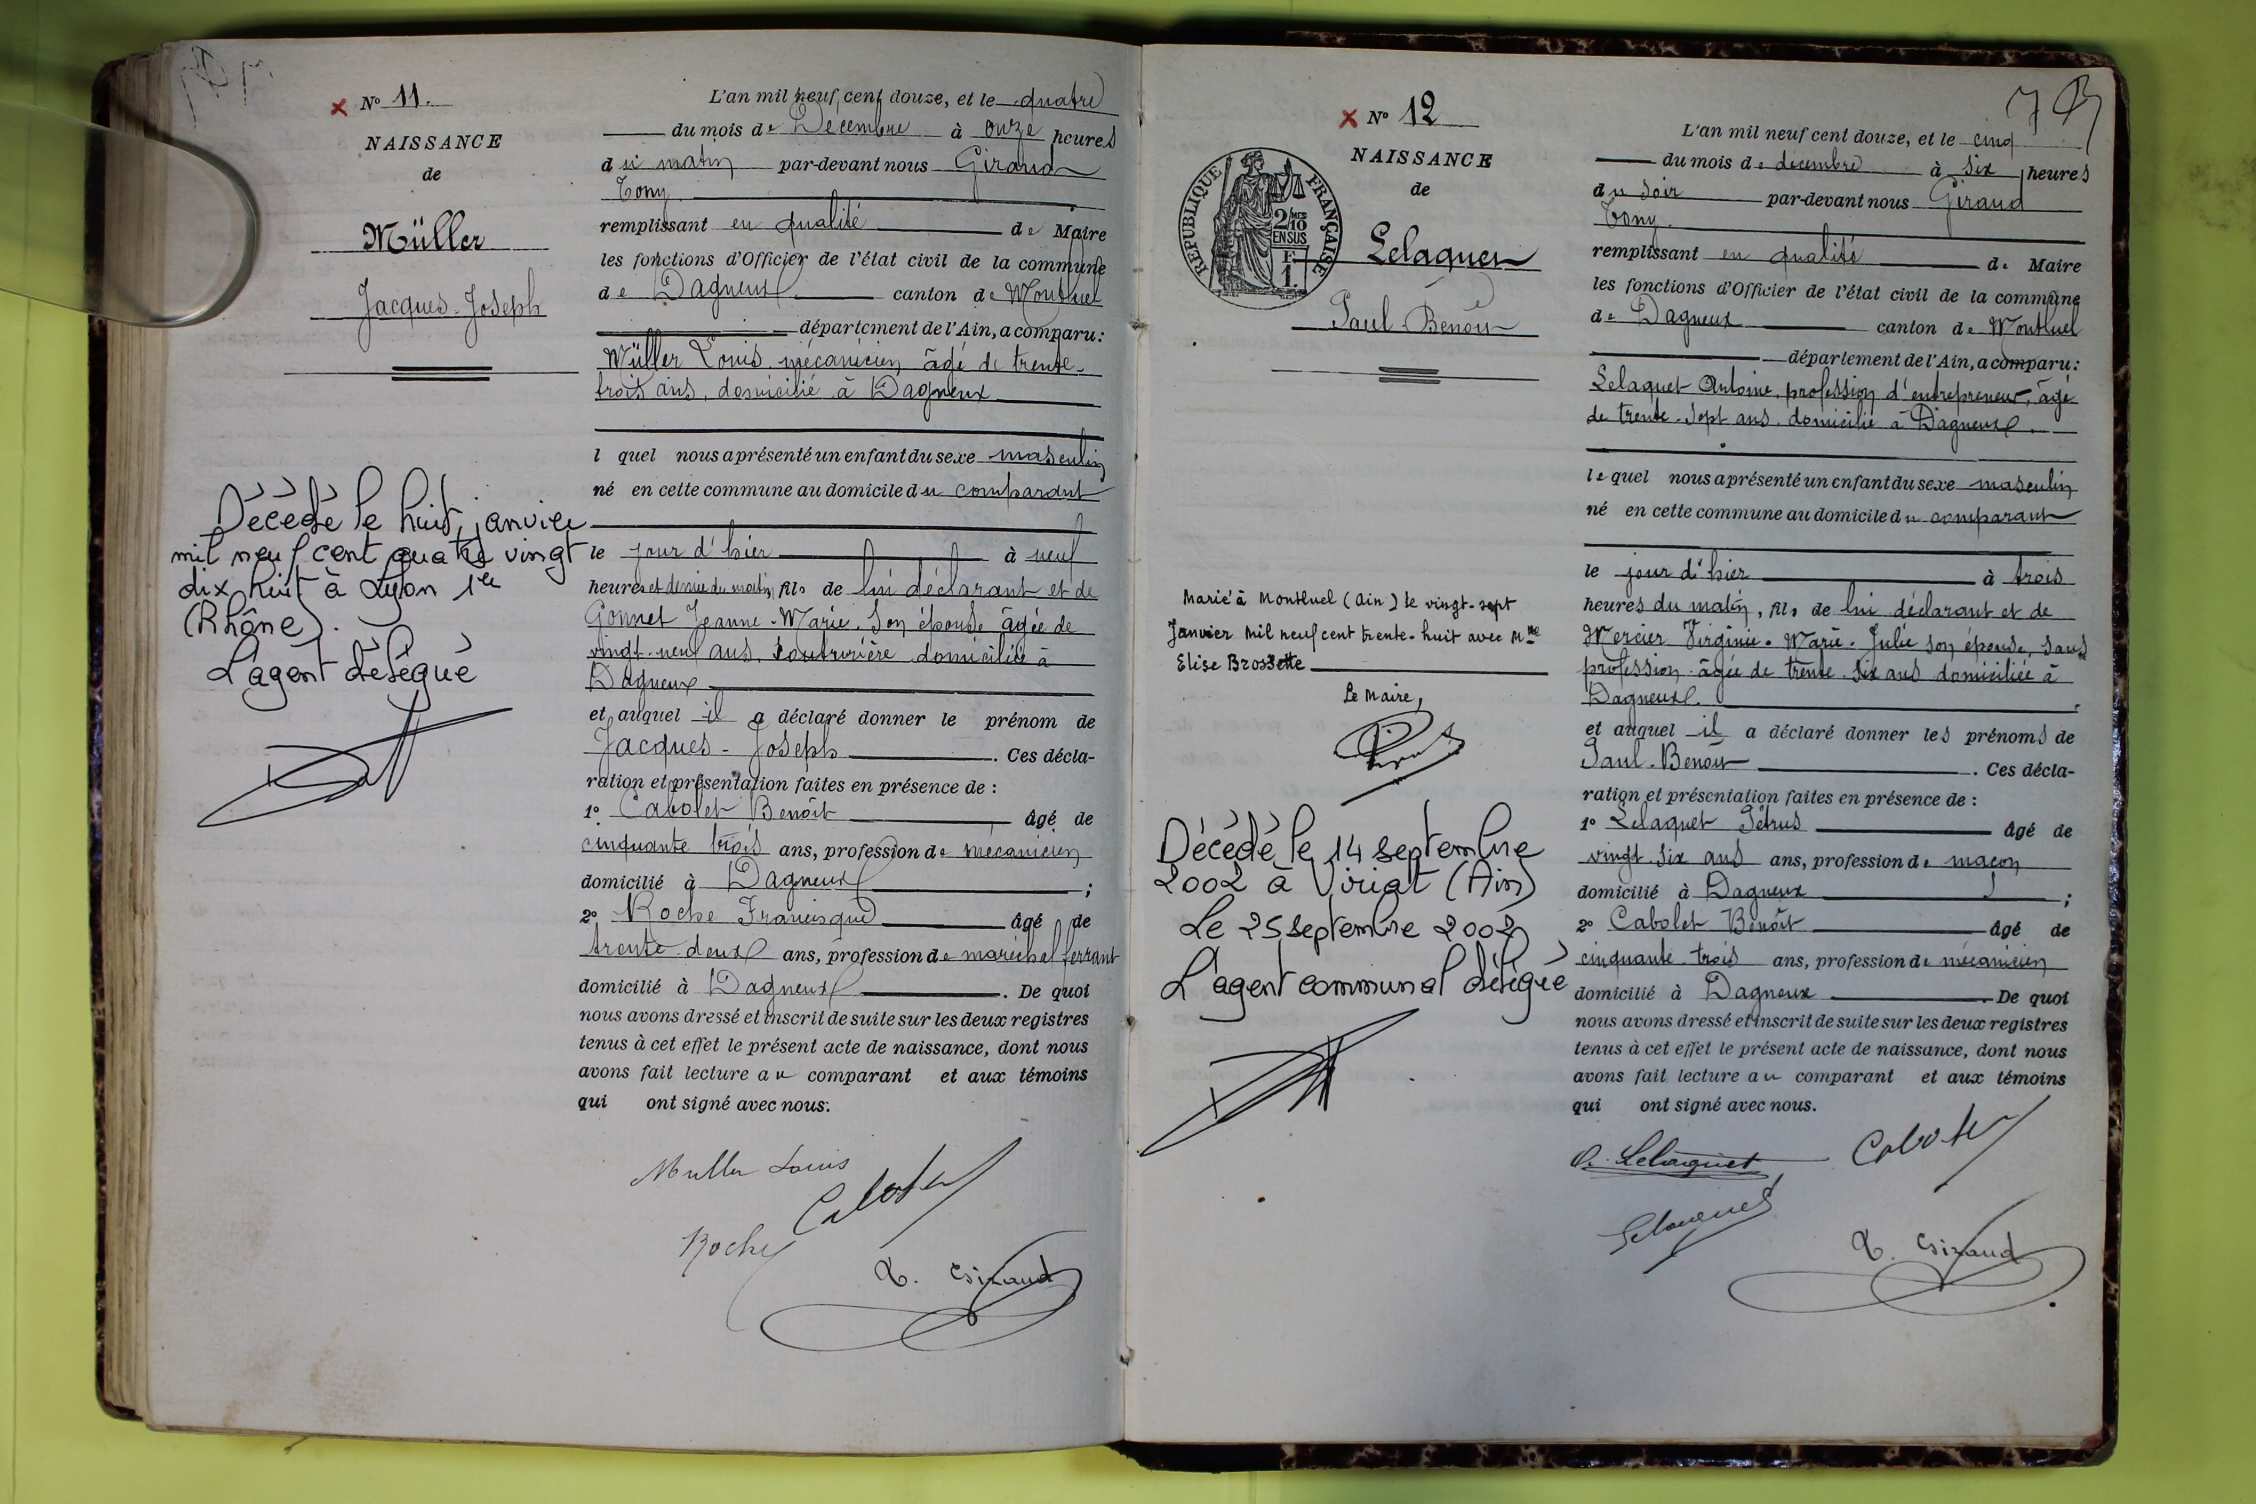 N° 11.
NAISSANCE
de
Müller
Jacques-Joseph
Décédé le huit janvier
mil neuf cent quatre vingt
dix huit à Lyon 1er
(Rhône).
L'agent délégué
L'an mil neuf cent douze, et le quatre
du mois de Décembre à onze heures
du matin par-devant nous Giraud
Tony.
remplissant en qualité de Maire
les fonctions d'Officier de l'état civil de la commune
de Dagneux canton de Montluel
département de l'Ain, a comparu:
Müller Louis, mécanicien âgé de trente-
trois ans, domicilié à Dagneux
l quel nous a présenté un enfant du sexe masculin
né en cette commune au domicile du comparant
le jour d'hier à neuf
heures et demie du matin, fils de lui déclarant et de
Gonnet Jeanne-Marie, son épouse âgée de
vingt-neuf ans, domiciliée à
Dagneux
et auquel il a déclaré donner le prénom de
Jacques-Joseph. Ces décla-
ration et présentation faites en présence de :
1° Cabolet Benoît âgé de
cinquante trois ans, profession de mécanicien
domicilié à Dagneux ;
2° Roche Francisque âgé de
trente deux ans, profession de maréchal ferrant
domicilié à Dagneux. De quoi
nous avons dressé et inscrit de suite sur les deux registres
tenus à cet effet le présent acte de naissance, dont nous
avons fait lecture au comparant et aux témoins
qui ont signé avec nous.
Muller Louis
Cabolet
Roche
T. Giraud
N° 12
NAISSANCE
de
RÉPUBLIQUE FRANÇAISE
2/10MES
EN SUS
F.
1.
Lelaquet
Paul-Benoît
Marié à Montluel (Ain) le vingt-sept
Janvier mil neuf cent trente-huit avec Mlle
Elise Brossette
Le Maire,
Décédé le 14 septembre
2002 à Viriat (Ain)
Le 25 septembre 2002
L'agent communal délégué
L'an mil neuf cent douze, et le cinq
du mois de décembre à six heures
du soir par-devant nous Giraud
Tony.
remplissant en qualité de Maire
les fonctions d'Officier de l'état civil de la commune
de Dagneux canton de Montluel
département de l'Ain, a comparu:
Lelaquet Antoine, profession d'entrepreneur, âgé
de trente-sept ans, domicilié à Dagneux.
lequel nous a présenté un enfant du sexe masculin
né en cette commune au domicile du comparant
le jour d'hier à trois
heures du matin, fils de lui déclarant et de
Mercier Virginie-Marie-Julie son épouse, sans
profession âgée de trente-six ans domiciliée à
Dagneux.
et auquel il a déclaré donner les prénoms de
Paul-Benoît. Ces décla-
ration et présentation faites en présence de :
1° Lelaquet Pétrus âgé de
vingt-six ans ans, profession de maçon
domicilié à Dagneux ;
2° Cabolet Benoît âgé de
cinquante-trois ans, profession de mécanicien
domicilié à Dagneux. De quoi
nous avons dressé et inscrit de suite sur les deux registres
tenus à cet effet le présent acte de naissance, dont nous
avons fait lecture au comparant et aux témoins
qui ont signé avec nous.
A. Lelaquet
Cabolet
Lelaquet
T. Giraud